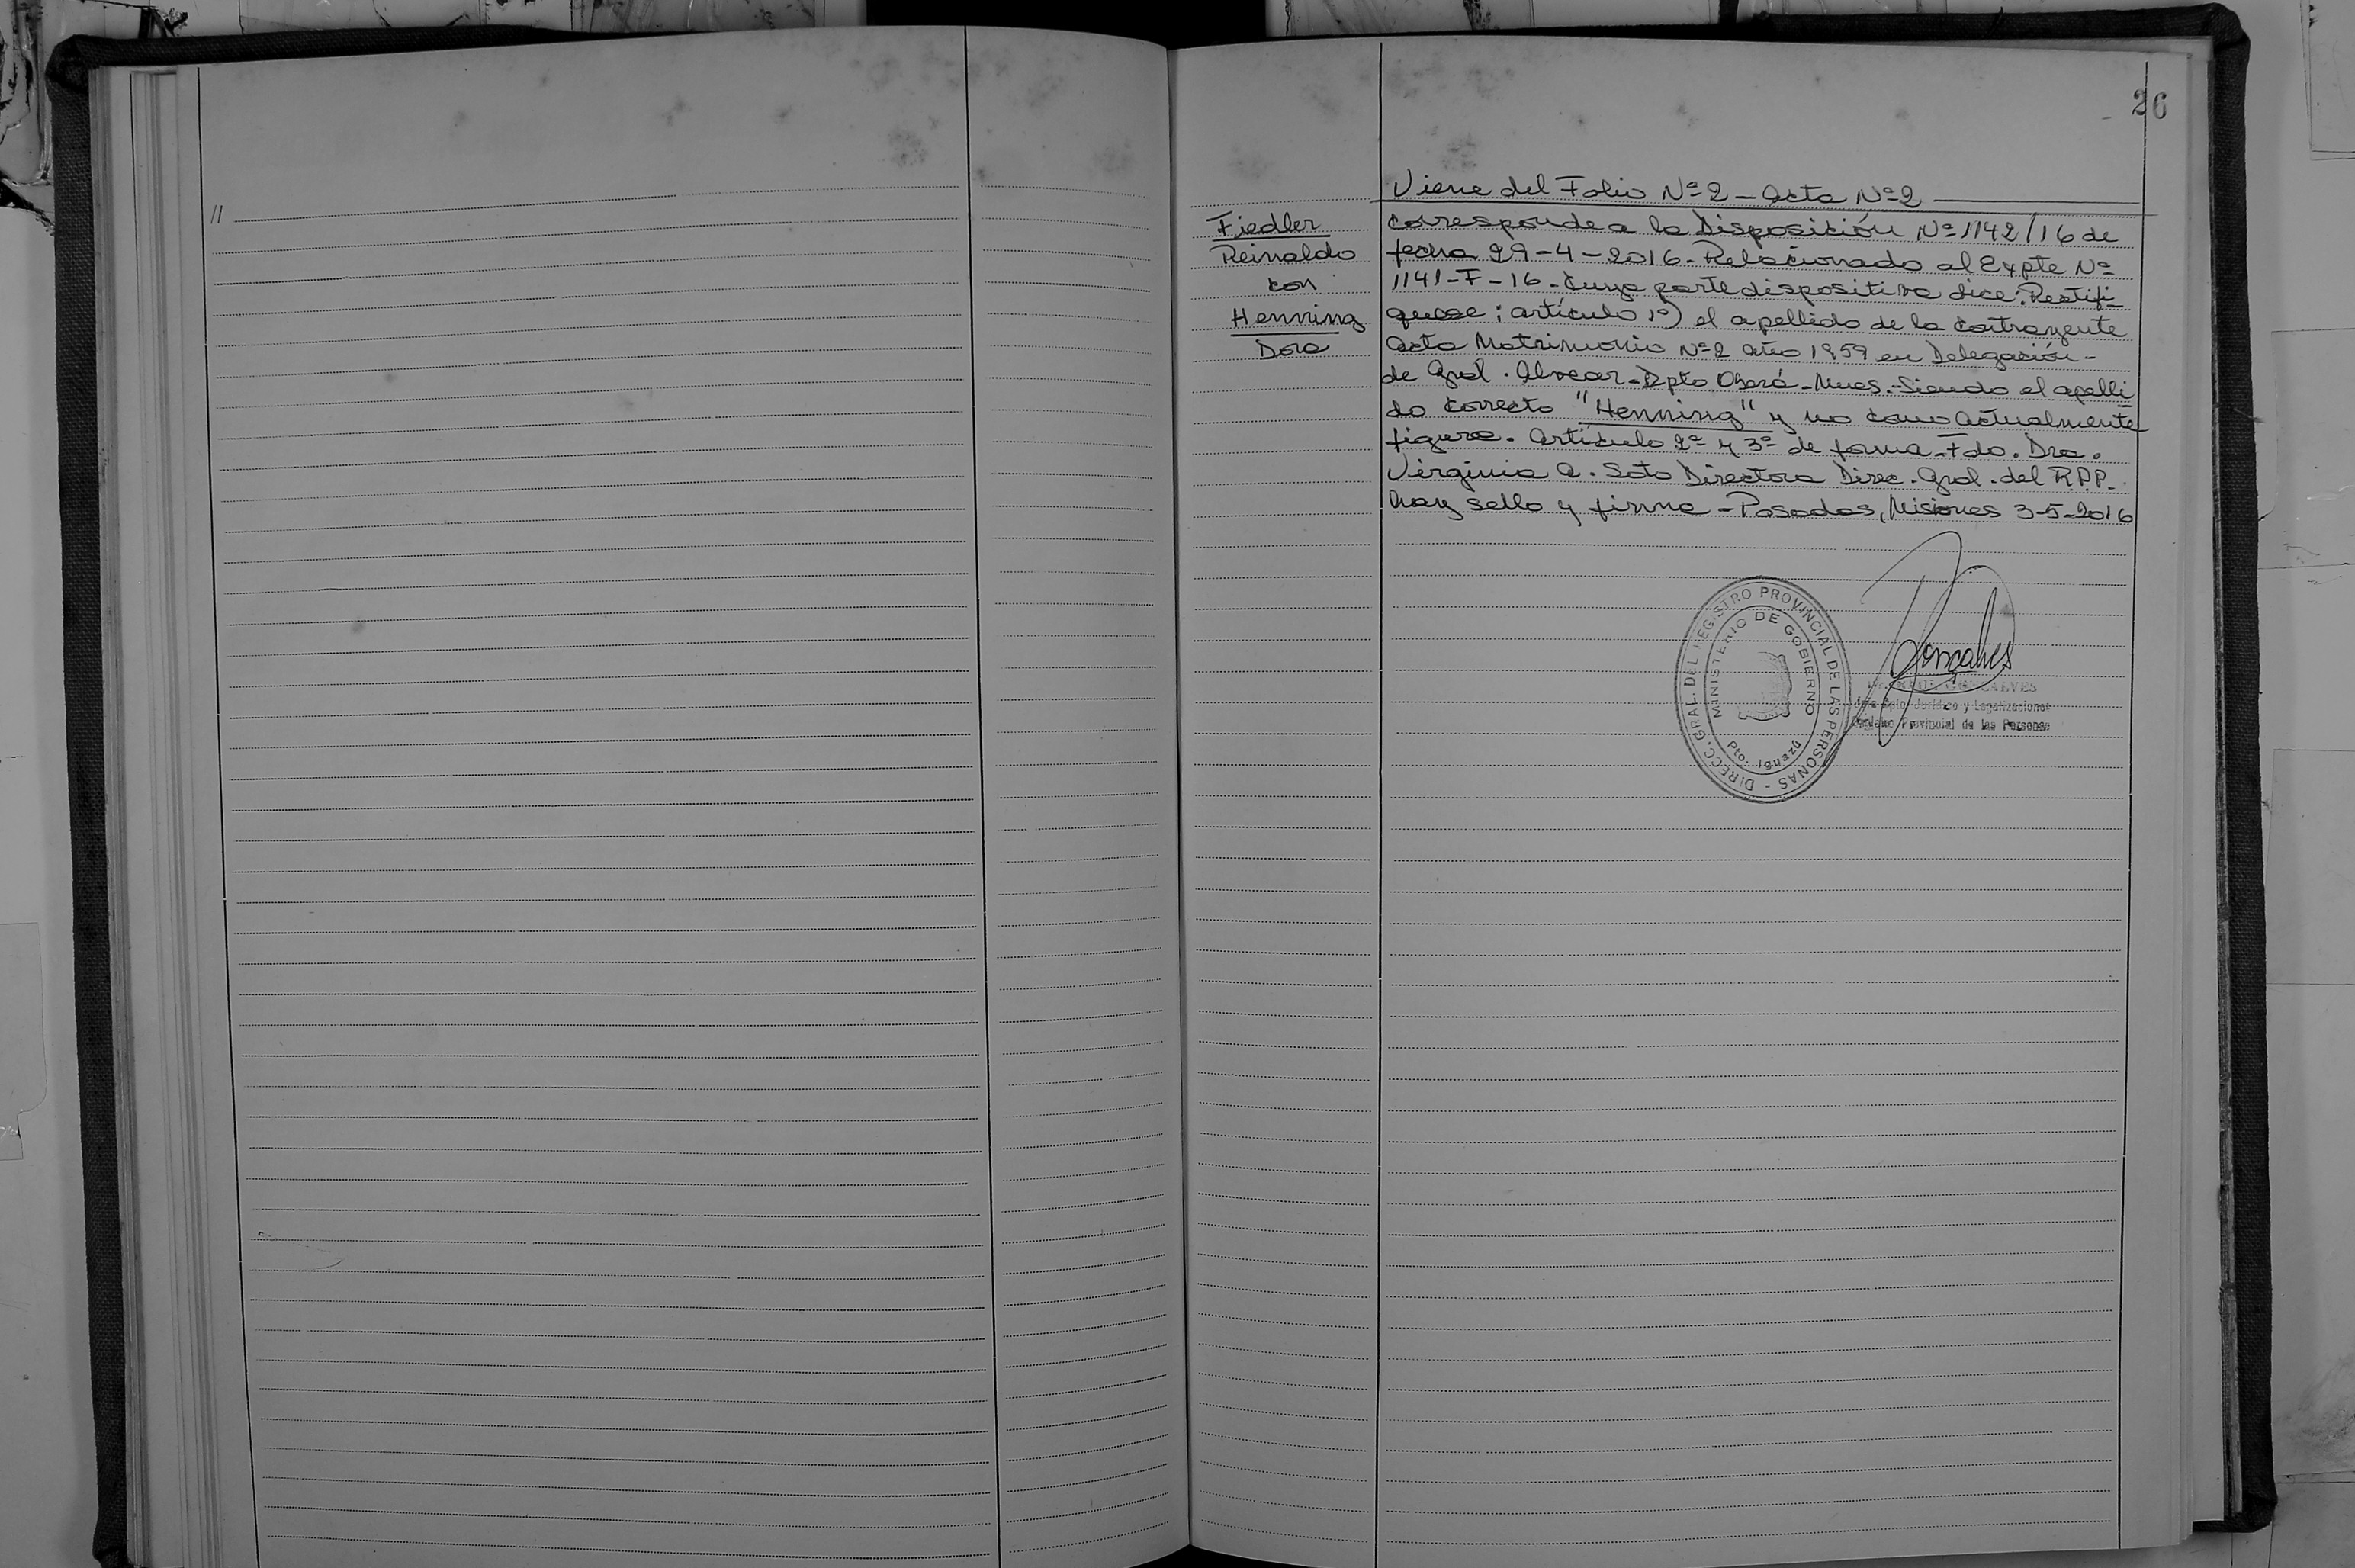 //
26
Viene del Folio Nº 2 - Acta Nº 2
Fiedler
Reinaldo
con
Henning
Dora
Corresponde a la Disposición Nº 1142/16 de
fecha 29-4-2016. Relacionado al Expte Nº
1141-F-16. Cuya parte dispositiva dice: Rectifi-
quese; artículo 1º) el apellido de la contrayente
Acta Matrimonio Nº 2 año 1959 en Delegación-
de Gral. Alvear - Dpto Oberá - Mnes. - Siendo el apelli-
do correcto "Henning" y no como actualmente
figura. Artículo 2º y 3º de forma - Fdo. Dra.
Virginia A. Soto Directora Direc. Gral. del R.P.P.
hay sello y firma - Posadas, Misiones 3-5-2016
DIRECC. GRAL. DEL REGISTRO PROVINCIAL DE LAS PERSONAS -
MINISTERIO DE GOBIERNO
Pto. Iguazú
Gonçalves
GONCALVES
Jefe Dpto. Jurídico y Legalizaciones
Registro Provincial de las Personas